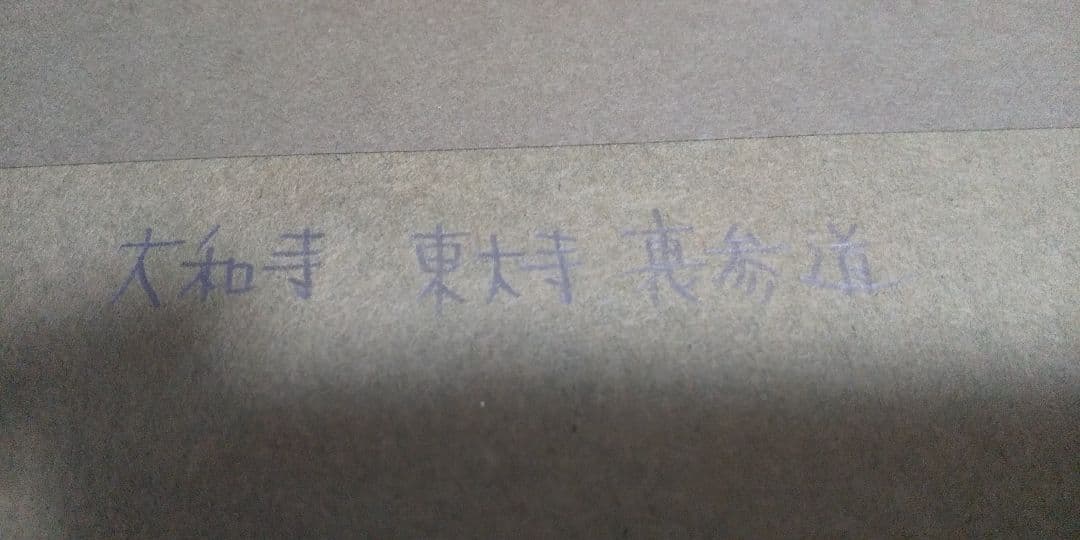 大和寺 東大寺 裏参道